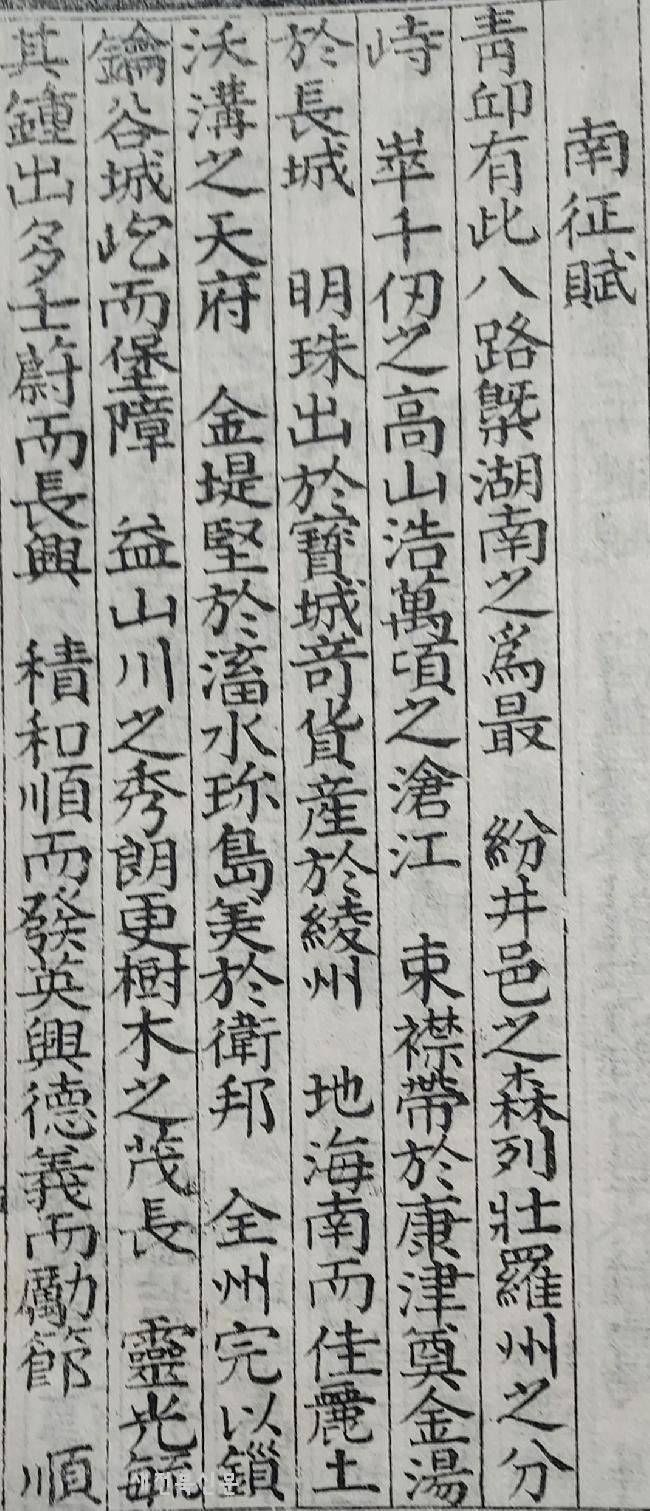 南征賦
青邱有此八路槩湖南之爲最 紛井邑之森列壯羅州之分
峙 崒千仞之高山浩萬頃之滄江 束襟帶於康津奠金湯
於長城 明珠出於寶城奇貨産於綾州 地海南而佳麗土
沃溝之天府 金堤堅於滀水珎島羙於衛邦 全州完以鎻
鑰谷城屹而堡障 益山川之秀朗更樹木之茂長 靈光毓
其鍾出多士蔚而長興 積和順而發英興德義而勵節 順